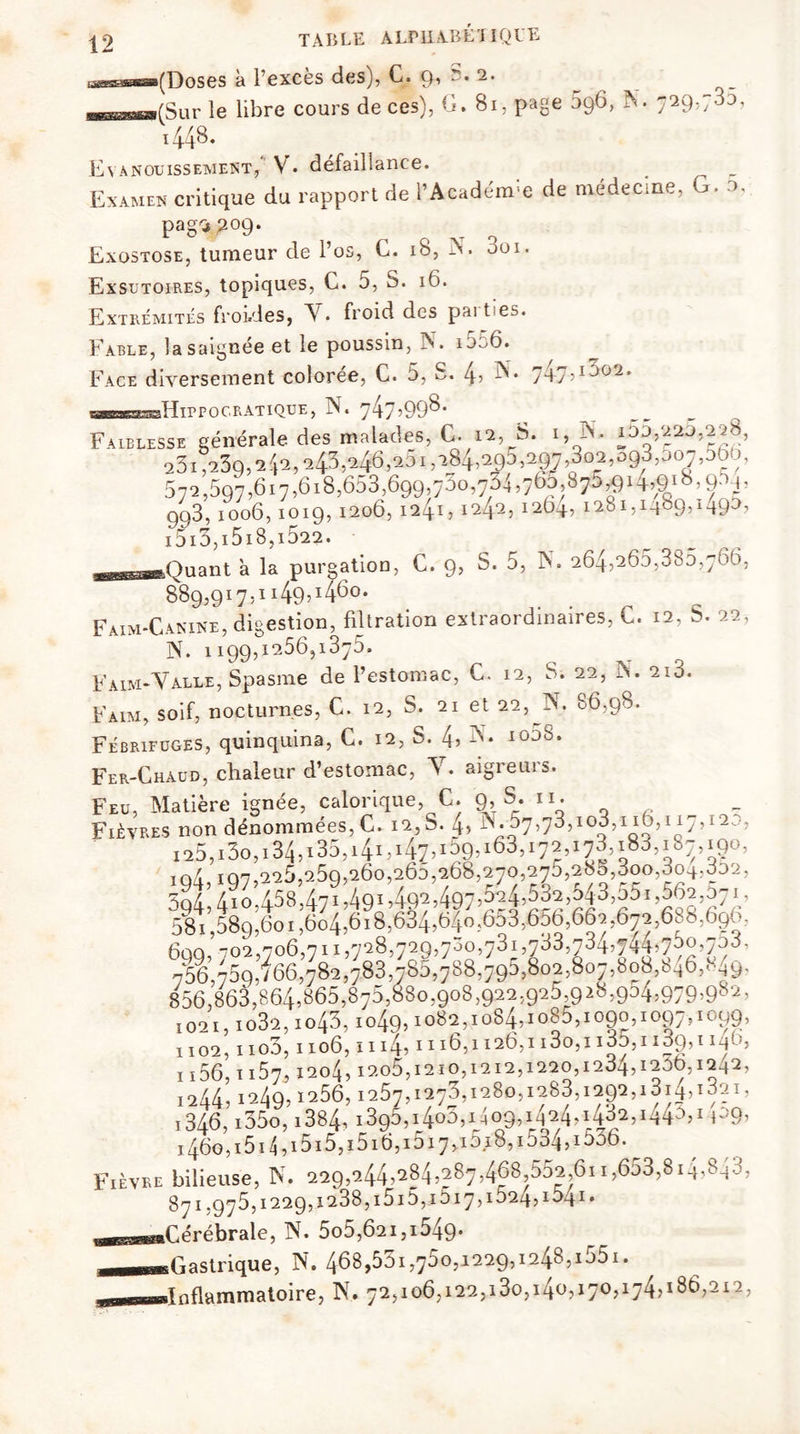 12 TABLE ALPHABÉTIQUE
(Doses à l'excès des), C. 9, S. 2.
(Sur le libre cours de ces), G. 81, page 596, N. 729,735,
1448.
EVANOUISSEMENT, V. défaillance.
EXAMEN critique du rapport de l'Académie de médecine, G. 5,
page 209.
EXOSTOSE, tumeur de l'os, C. 18, N. 301.
EXSUTOIRES, topiques, C. 5, S. 16.
EXTRÉMITÉS froides, V. froid des parties.
FABLE, la saignée et le poussin, N. 1556.
FACE diversement colorée, C. 5, S. 4, N. 747,1302.
HIPPOCRATIQUE, N. 747,998.
FAIBLESSE générale des malades, C. 12, S. 1, N. 155,225,228,
231,239,242,243,246,251,284,295,297,302,393,507,566,
572,597,617,618,653,699,730,734,765,875,914,918,954,
993, 1006, 1019, 1206, 1241, 1242, 1264, 1281,1489,1495,
1513,1518,1522.
Quant à la purgation, C. 9, S. 5, N. 264,265,385,766,
889,917,1149,1460.
FAIM-CANINE, digestion, filtration extraordinaires, C. 12, S. 22,
N. 1199,1256,1375.
FAIM-VALLE, Spasme de l'estomac, C. 12, S. 22, N. 213.
FAIM, soif, nocturnes, C. 12, S. 21 et 22, N. 86,98.
FÉBRIFUGES, quinquina, C. 12, S. 4, N. 1058.
FER-CHAUD, chaleur d'estomac, V. aigreurs.
FEU, Matière ignée, calorique, C. 9, S. 11.
FIÈVRES non dénommées, C. 12, S. 4, N. 57,73,103,116,117,123,
125,130,134,135,141,147,159,163,172,173,183,187,190,
194,197,225,259,260,265,268,270,275,285,300,304,352,
394,410,458,471,491,492,497,524,532,543,551,562,571,
581,589,601,604,618,634,640,653,656,662,672,688,696,
699, 702,706,711,728,729,730,731,733,734,744,750,753,
756,759,766,782,783,785,788,795,802,807,808,846,849,
856,863,864,865,875,880,908,922,925,928,954,979,982,
1021, 1032, 1043, 1049, 1082,1084,1085,1090,1097,1099,
1102, 1103, 1106, 1114, 1116,1126,1130,1135,1139,1146,
1156, 1157, 1204, 1205,1210,1212,1220,1234,1236,1242,
1244, 1249, 1256, 1257,1273,1280,1283,1292,1314,1321,
1346, 1350, 1384, 1395,1403,1409,1424,1432,1443,1459,
1460,1514,1515,1516,1517,1518,1534,1536.
FIÈVRE bilieuse, N. 229,244,284,287,468,552,611,653,814,843,
871,975,1229,1238,1515,1517,1524,1541.
Cérébrale, N. 505,621,1549.
Gastrique, N. 468,531,750,1229,1248,1551.
Inflammatoire, N. 72,106,122,130,140,170,174,186,212,